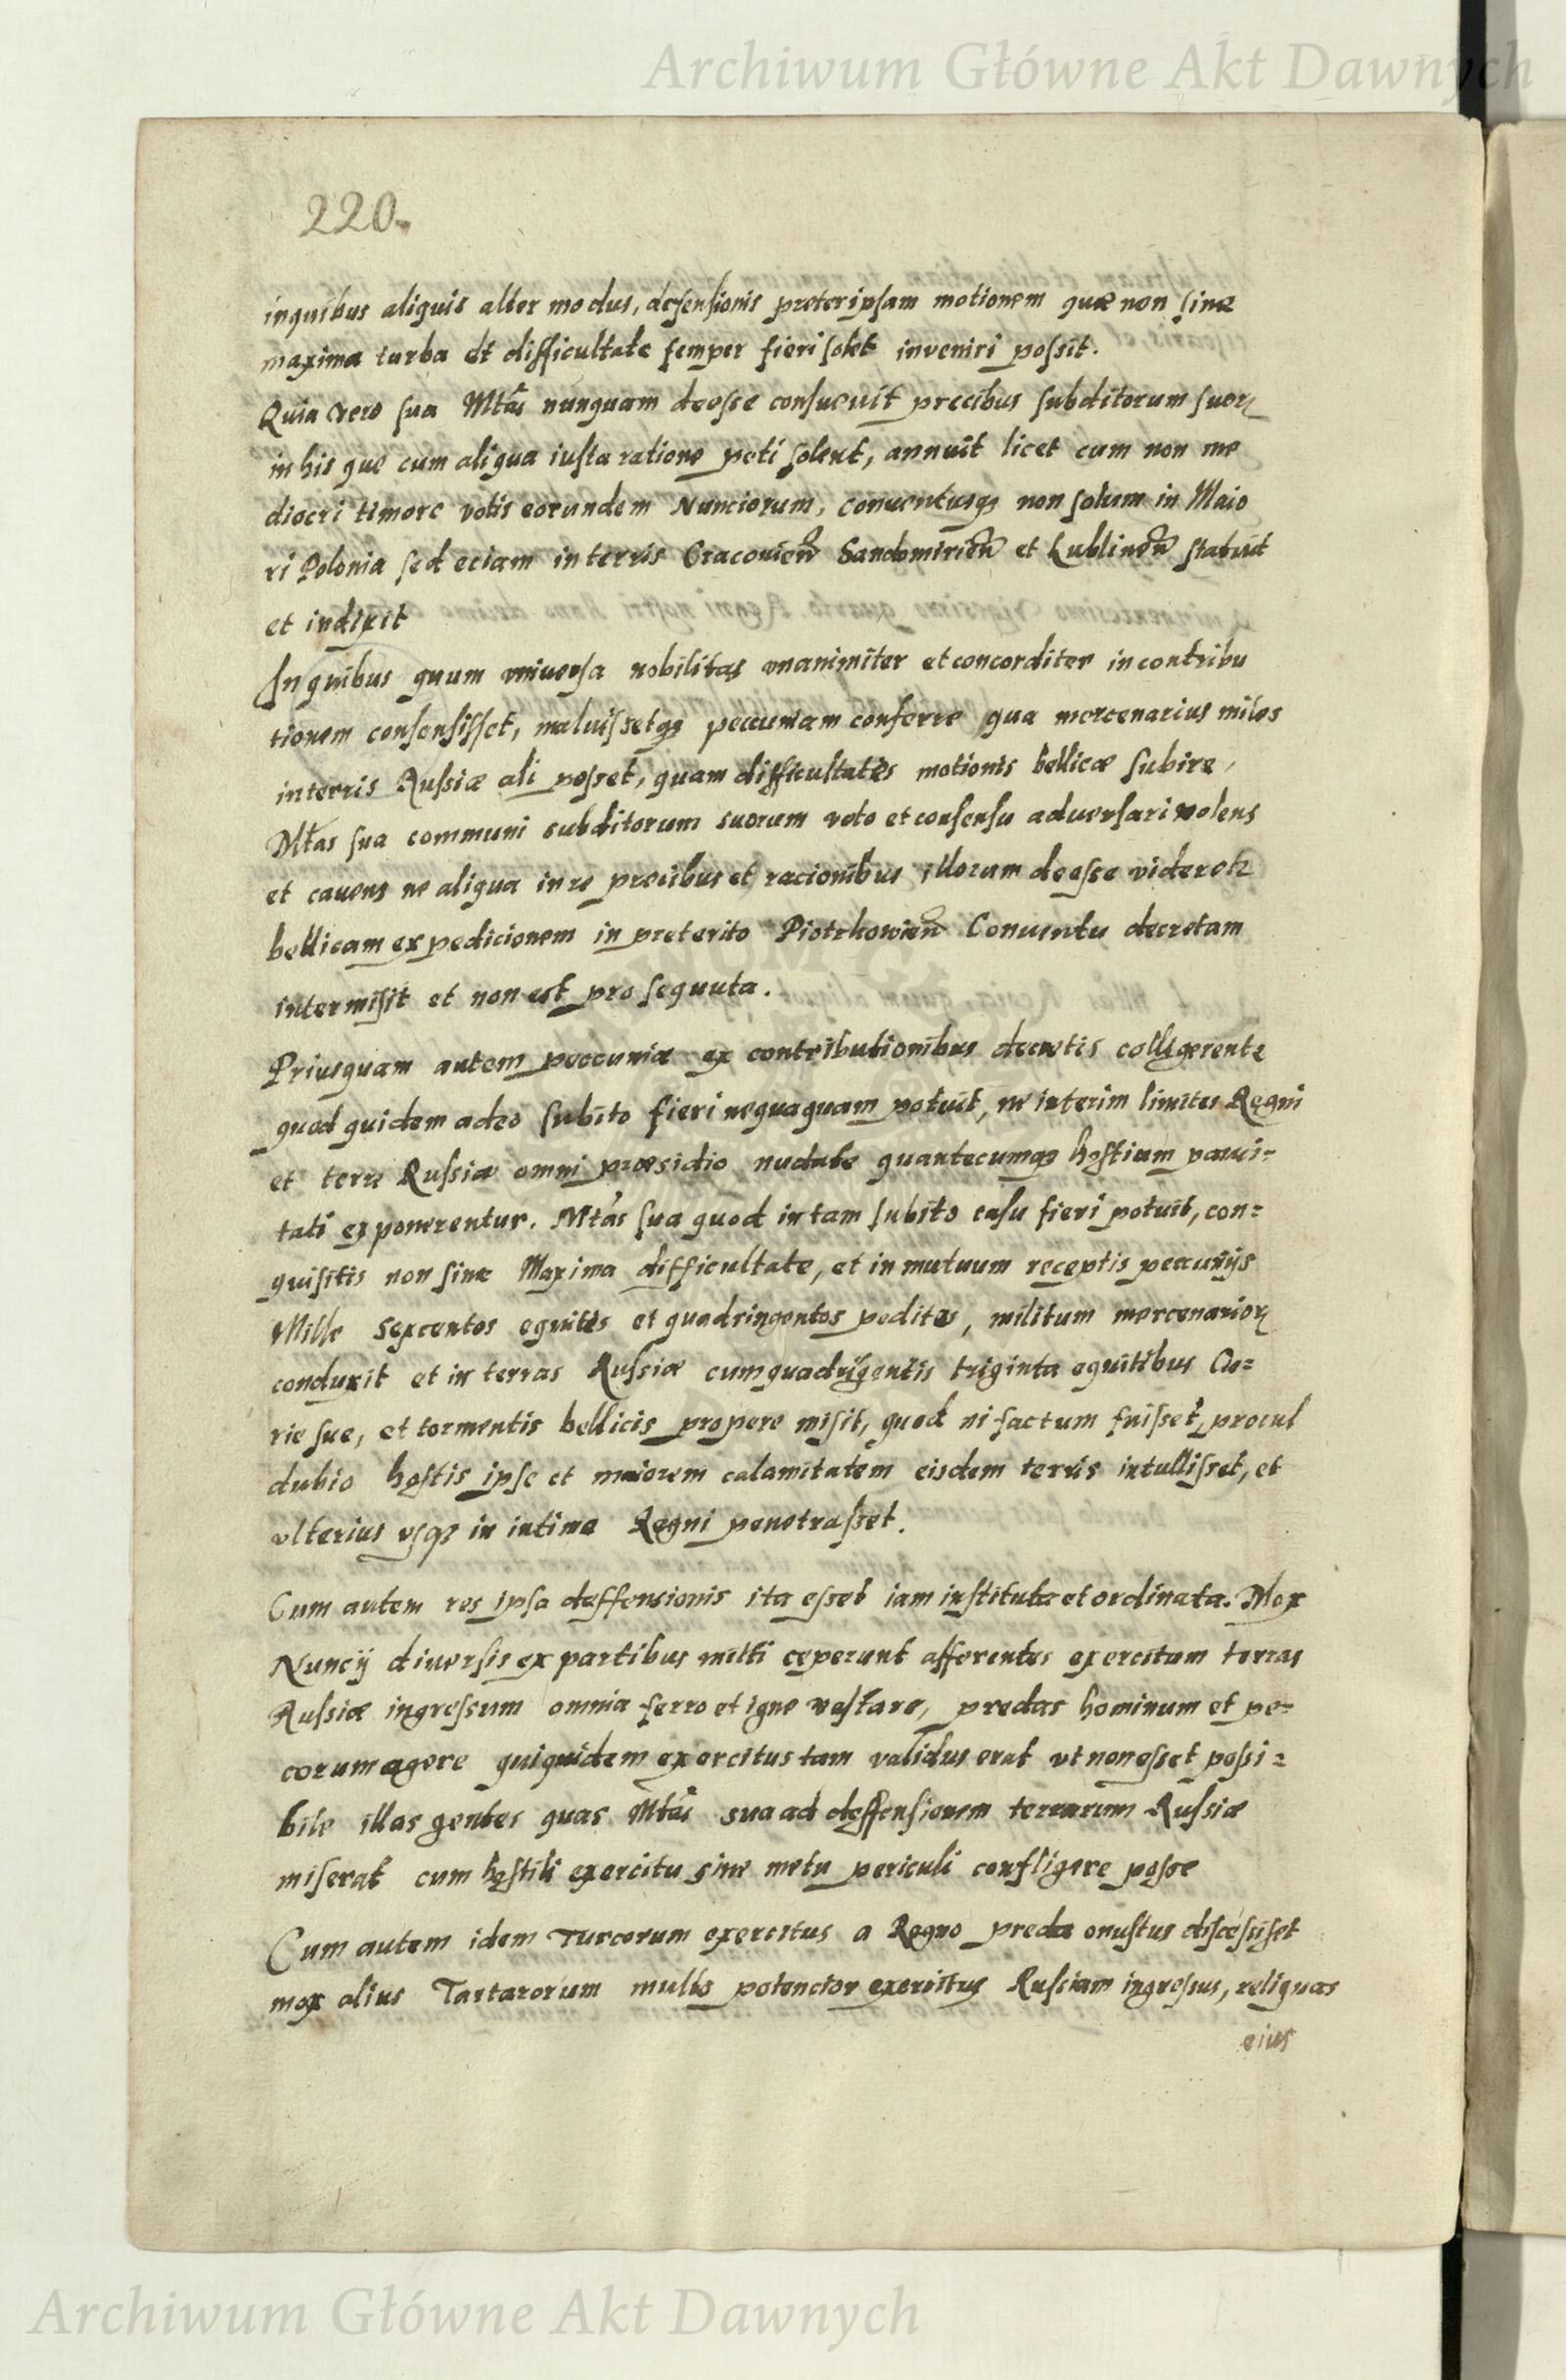 Archiwum Główne Akt Dawnych
220.
inquibus aliquis alter modus, defensionis preter ipsam motionem quæ non sine
maxima turba et difficultate semper fieri solet inveniri possit.
Quia vero sua Mtas nunquam deesse consuevit precibus subditorum suorꝝ
in his que cum aliqua iusta ratione peti solent, annuit licet cum non me
diocri timore votis eorundem Nunciorum, conventusqꝫ non solum in Maio
ri Polonia sed eciam in terris Cracovien̄ Sandomirien̄ et Lublinen̄ statuit
et indixit
In quibus quum universa nobilitas unanimiter et concorditer in contribu
tionem consensisset, maluissetqꝫ peccuniam conferre qua mercenarius miles
in terris Russiæ ali posset, quam difficultates motionis bellicæ subire,
Mtas sua communi subditorum suorum voto et consensu adversari nolens
et cavens ne aliqua in re precibus et racionibus illorum deesse videretꝛ
bellicam expedicionem in preterito Piotrkowien̄ Conventu decretam
intermisit et non est prosequuta.
Priusquam autem peccuniæ ex contributionibus decretis colligerente
quod quidem adeo subito fieri nequaquam potuit, ne interim limites Regni
et terre Russiæ omni præsidio nudate quantecumqꝫ hostium pauci=
tati exponerentur. Mtas sua quod in tam subito casu fieri potuit, con=
quisitis non sine Maxima difficultate, et in mutuum receptis peccunijs
Mille sexcentos equites et quadringentos pedites, militum mercenariorꝝ
conduxit et in terras Russiæ cum quadrigentis triginta equitibus Cu=
rie sue, et tormentis bellicis propere misit, quod ni factum fuisset, procul
dubio hostis ipse et maiorem calamitatem eisdem terris intullisset, et
ulterius usqꝫ in intima Regni penetrasset.
Cum autem res ipsa deffensionis ita esset iam instituta et ordinata. Mox
Nuncij diversis ex partibus mitti ceperunt afferentes exercitum terras
Russiæ ingressum omnia ferro et igne vastare, predas hominum et pe=
corum agere quiquidem exercitus tam validus erat ut non esset possi=
bile illas gentes quas Mtas sua ad deffensionem terrarum Russiæ
miserat cum hostili exercitu sine metu periculi confligere posse
Cum autem idem Turcorum exercitus a Regno preda onustus discessisset
mox alius Tartarorum multo potencior exercitus Russiam ingressus, reliquas
eius
Archiwum Główne Akt Dawnych